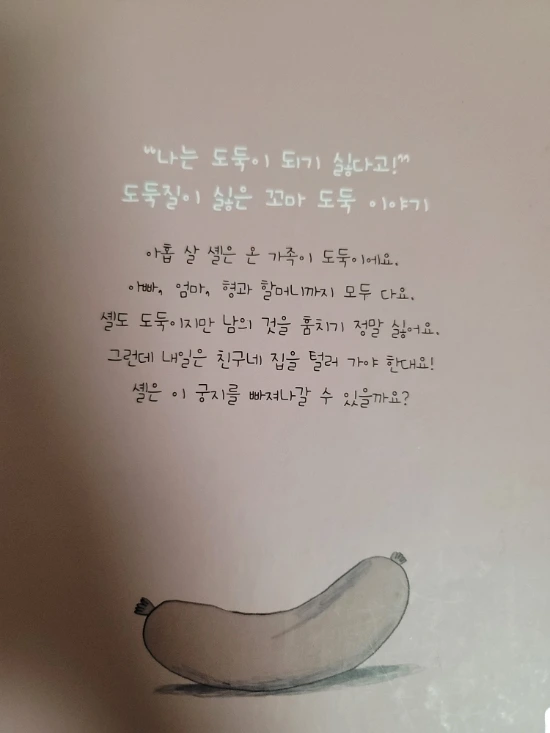 "나는 도둑이 되기 싫다고!"
도둑질이 싫은 꼬마 도둑 이야기
아홉 살 셸은 온 가족이 도둑이에요.
아빠, 엄마, 형과 할머니까지 모두 다요.
셸도 도둑이지만 남의 것을 훔치기 정말 싫어요.
그런데 내일은 친구네 집을 털러 가야 한대요!
셸은 이 궁지를 빠져나갈 수 있을까요?